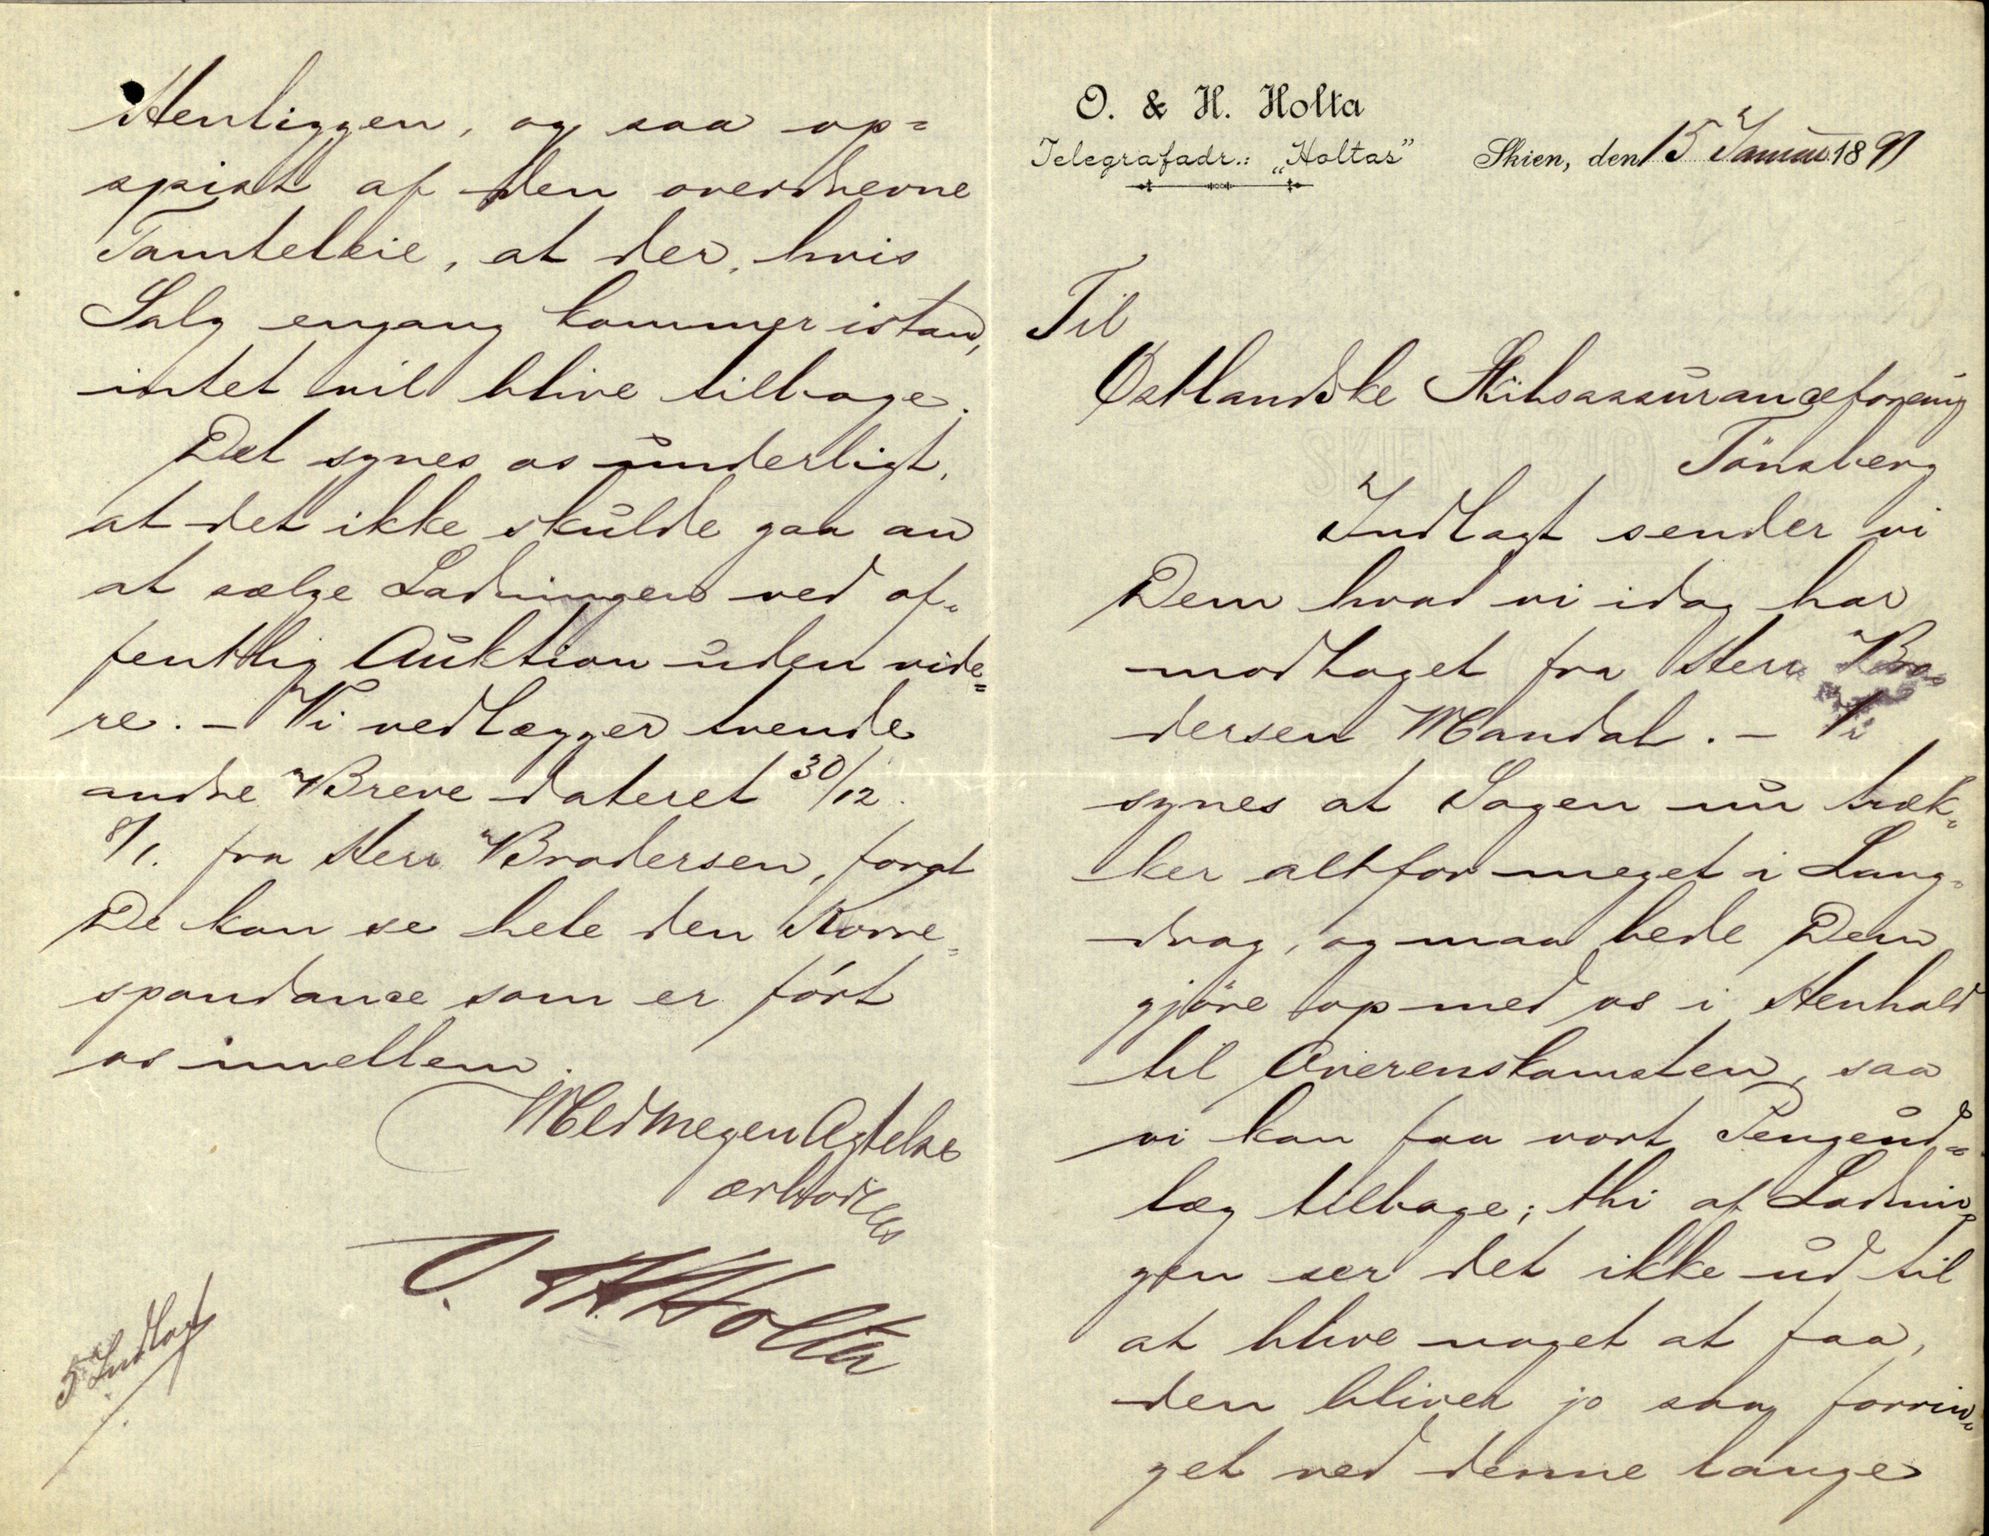 O. & H. Holta
Telegrafadr.: „Holtas”
Skien, den 15 Januar 1891
Til
Østlandske Skibsassuranceforening
Tönsberg
Indlagt sender vi
Dem hvad vi idag har
modtaget fra Herr Bro-
dersen Mandal. – Vi
synes at Sagen nu træk-
ker altfor meget i Lang-
drag, og maa bede Dem
gjöre op med os i Henhold
til Overenskomsten, saa
vi kan faa vort Pengeud-
læg tilbage; thi af Ladnin-
gen ser det ikke ud til
at blive noget at faa,
den bliver jo saa forrin-
get ved denne lange
Henliggen, og saa op=
spist af den overdrevne
Tomteleie, at der, hvis
Salg engang kommer istand,
intet vil blive tilbage.
Det synes os underligt,
at det ikke skulde gaa an
at sælge Ladningen ved of-
fentlig Auktion uden vide=
re. – Vi vedlægger tvende
andre Breve dateret 30/12.
8/1. fra Herr Brodersen, forat
De kan se hele den Korre-
spondance som er fört
os imellem.
Med megen Agtelse
ærbödigst
O. & H. Holta
5 Indlag